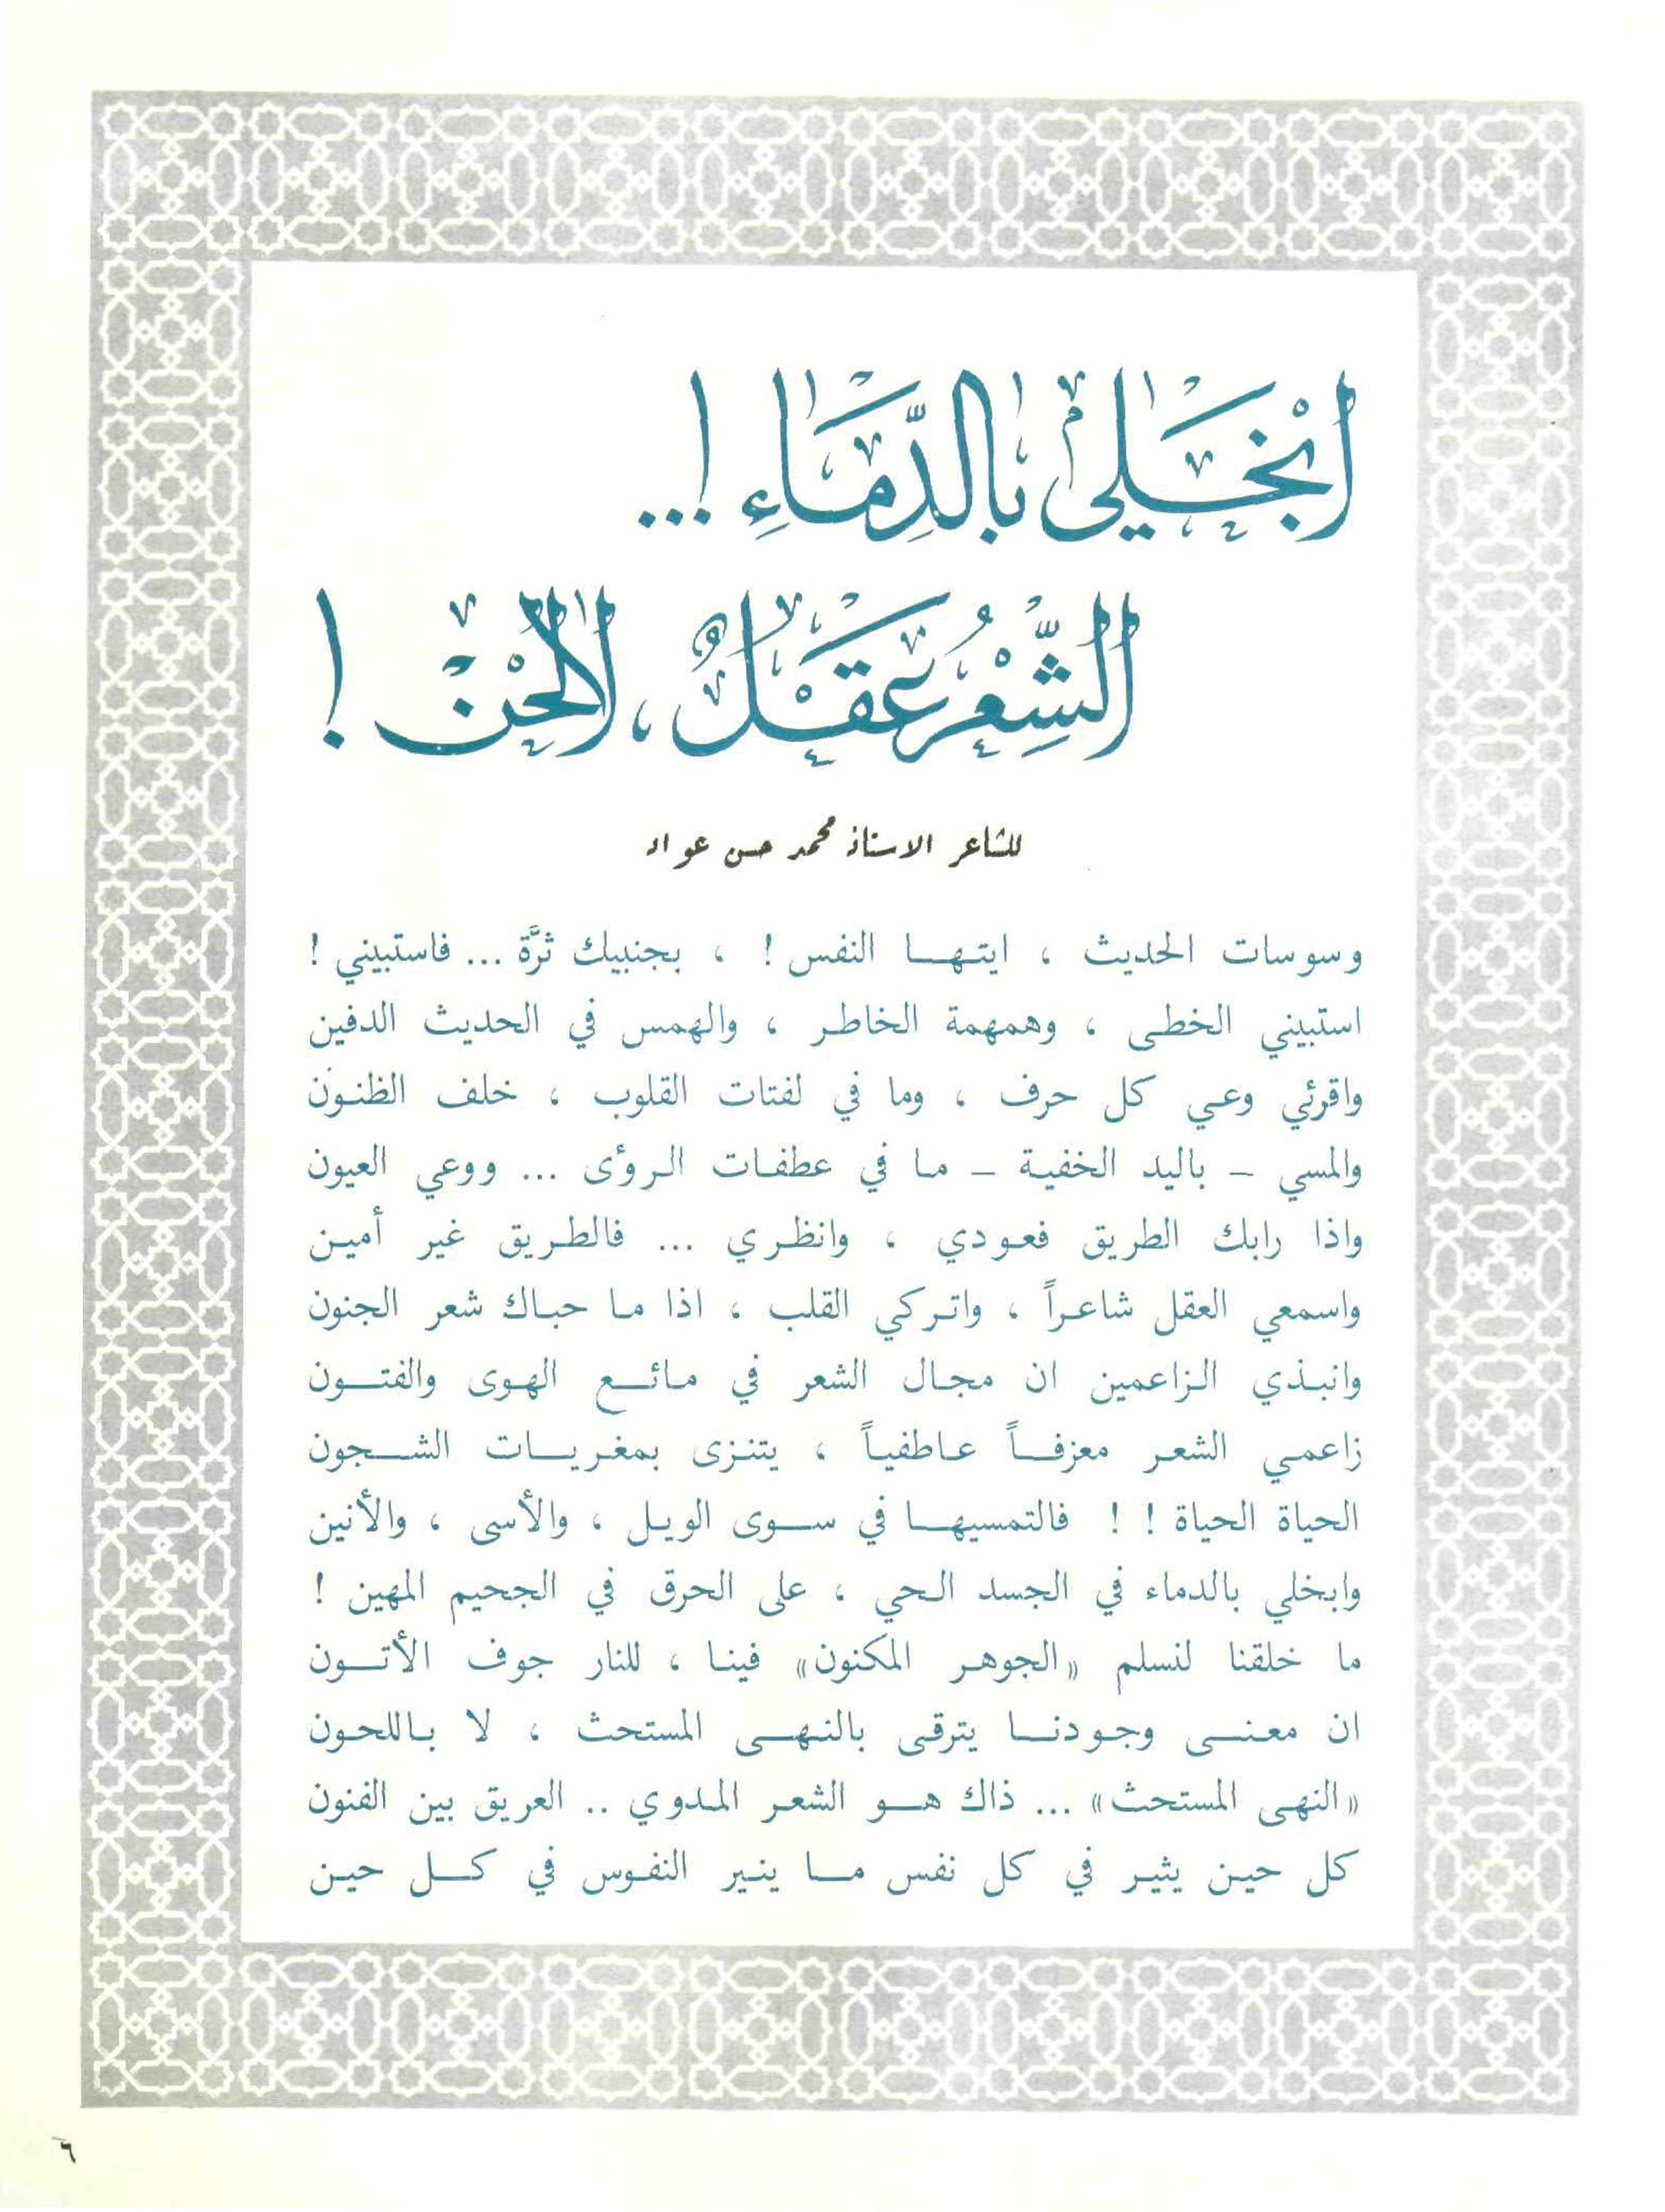 ابْخَلي بالدِّمَاءِ !...
الشِّعْرُ عَقْلٌ ، لا لحْنْ !
للشاعر الاستاذ محمد حسن عواد
وسوسات الحديث ، ايتها النفس ! ، بجنبيك ثرَّة ... فاستبيني !
استبيني الخطى ، وهمهمة الخاطر ، والهمس في الحديث الدفين
واقرئي وعي كل حرف ، وما في لفتات القلوب ، خلف الظنون
والمسي – باليد الخفية – ما في عطفات الرؤى ... ووعي العيون
واذا رابك الطريق فعودي ، وانظري ... فالطريق غير أمين
واسمعي العقل شاعراً ، واتركي القلب ، اذا ما حباك شعر الجنون
وانبذي الزاعمين ان مجال الشعر في مائع الهوى والفتون
زاعمي الشعر معزفاً عاطفياً ، يتنزى بمغريات الشجون
الحياة الحياة ! ! فالتمسيها في سوى الويل ، والأسى ، والأنين
وابخلي بالدماء في الجسد الحي ، على الحرق في الجحيم المهين !
ما خلقنا لنسلم «الجوهر المكنون» فينا ، للنار جوف الأتون
ان معنى وجودنا يترقى بالنهى المستحث ، لا باللحون
«النهى المستحث» ... ذاك هو الشعر المدوي .. العريق بين الفنون
كل حين يثير في كل نفس ما ينير النفوس في كل حين
٦